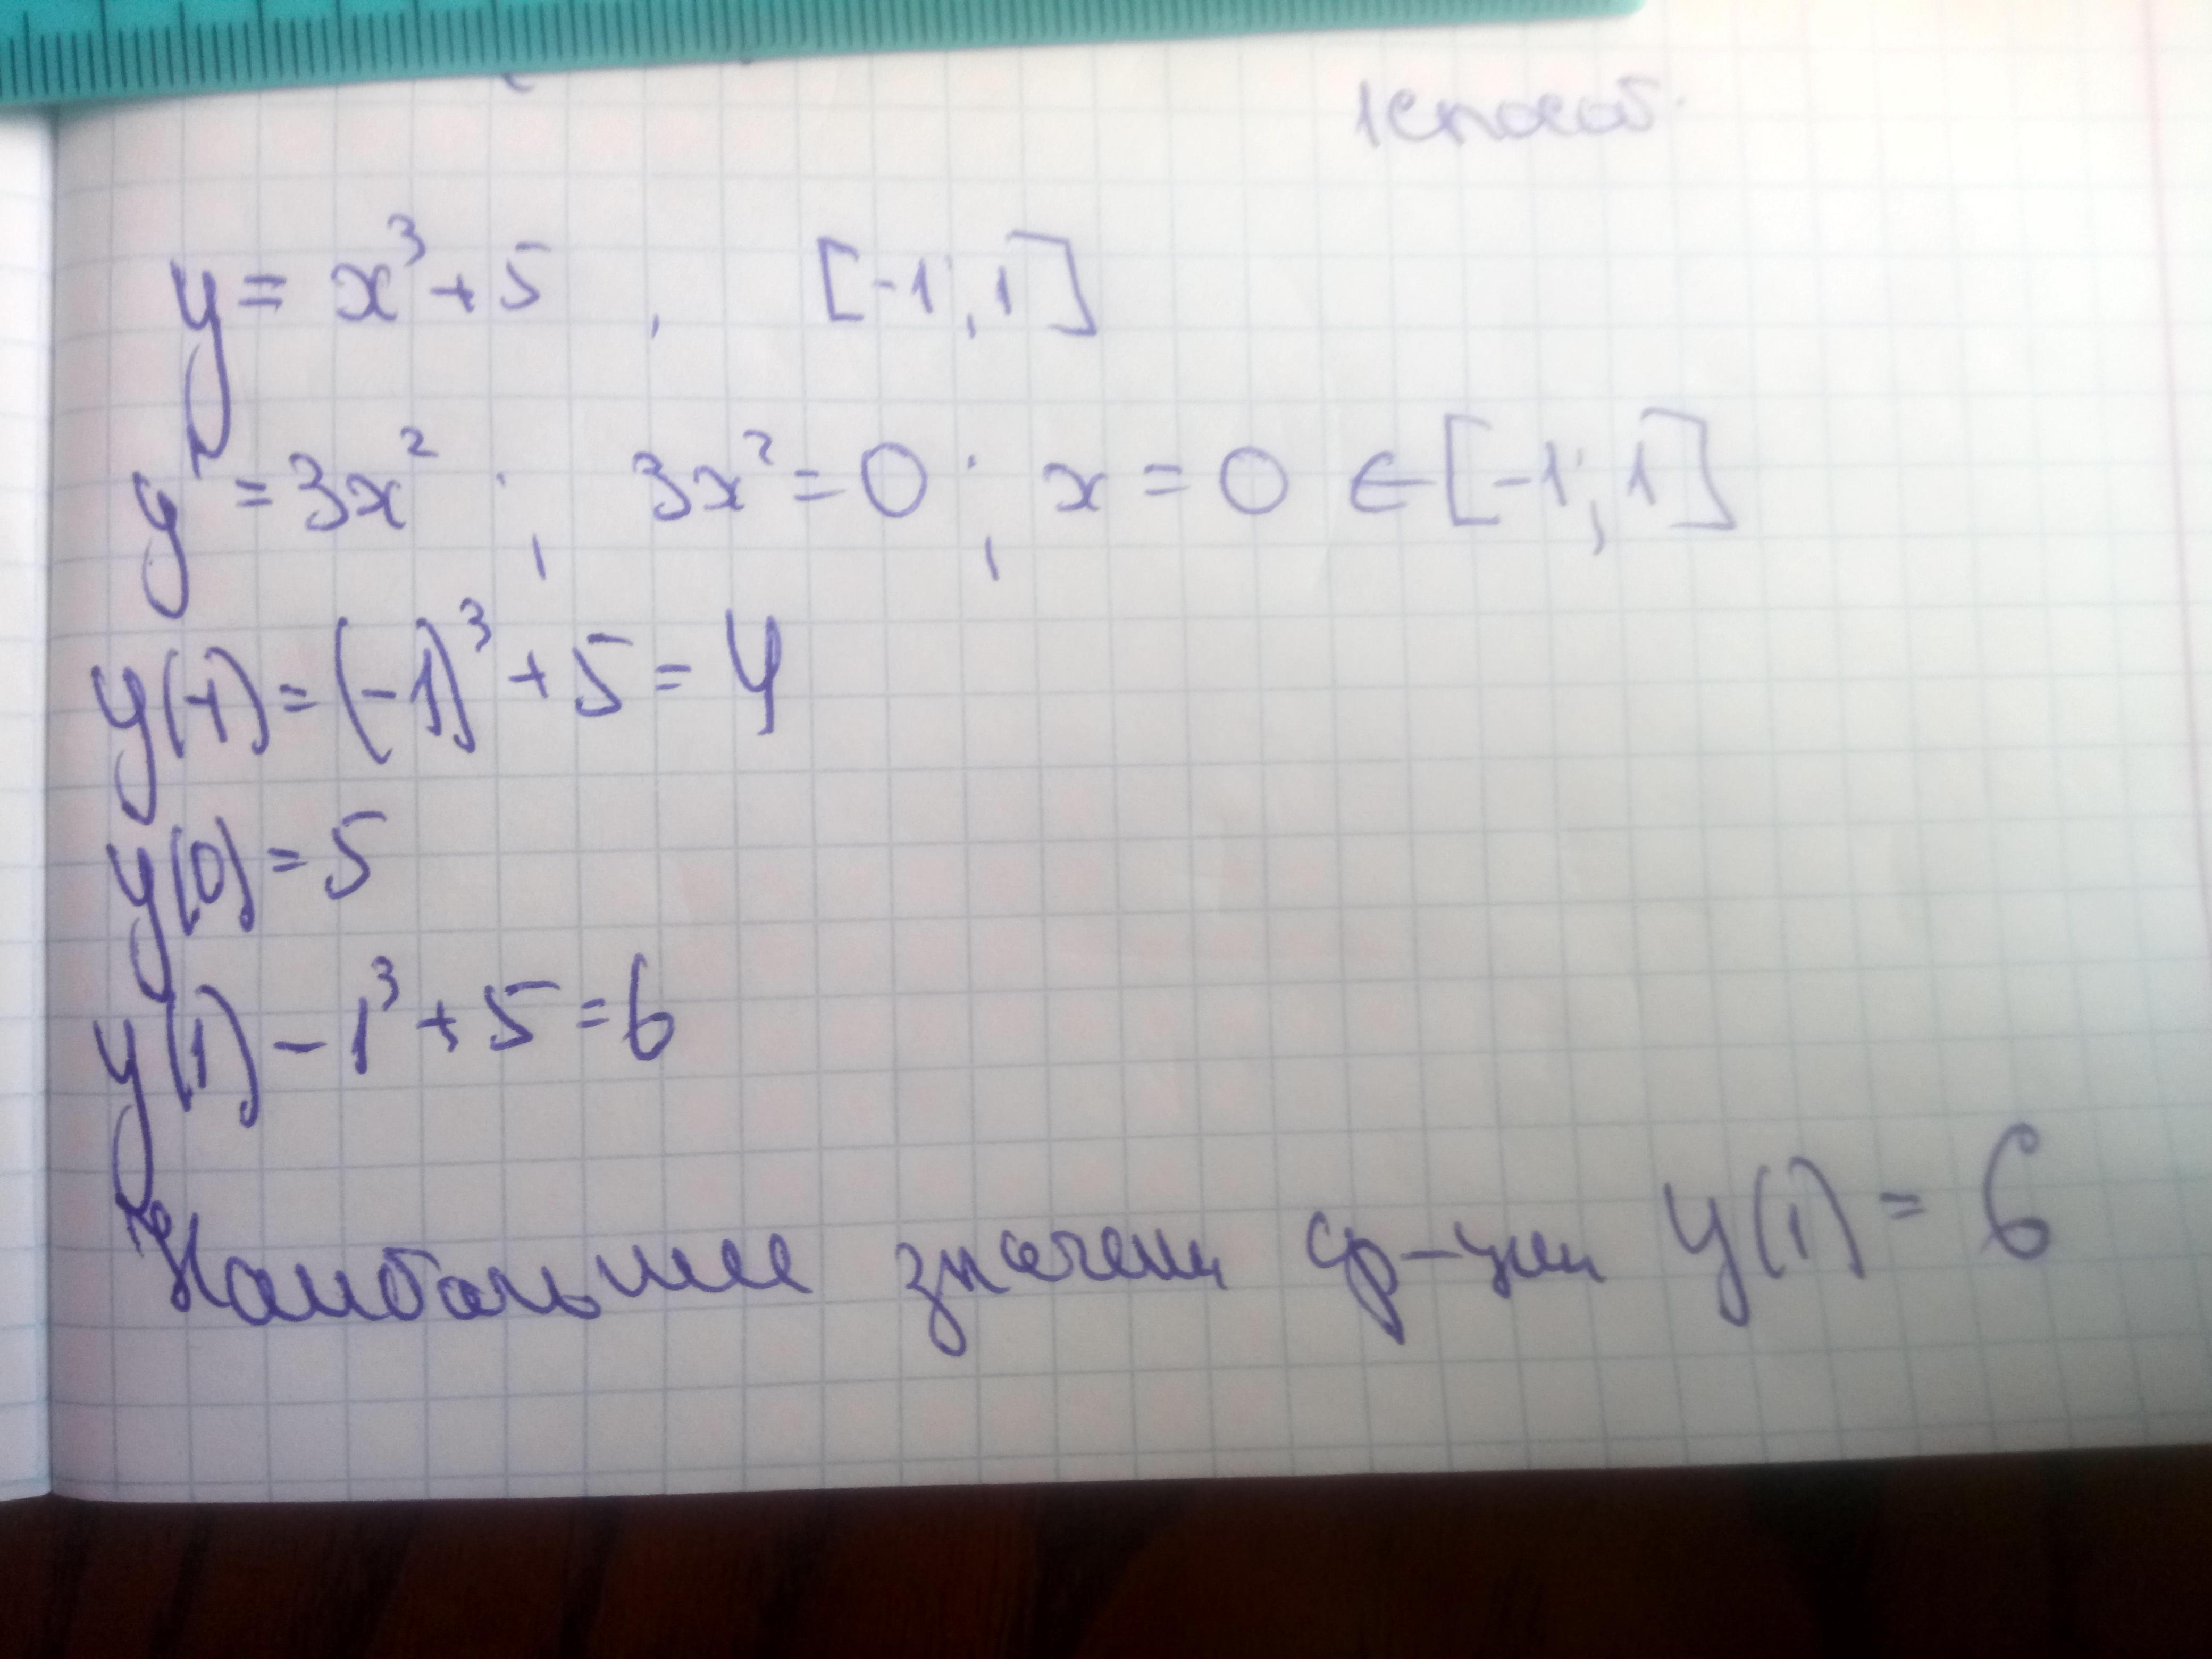 1способ.
y = x³ + 5 , [-1; 1]
y' = 3x² ; 3x² = 0 ; x = 0 ∈ [-1; 1]
y(-1) = (-1)³ + 5 = 4
y(0) = 5
y(1) - 1³ + 5 = 6
Наибольшее значени ф-ции y(1) = 6